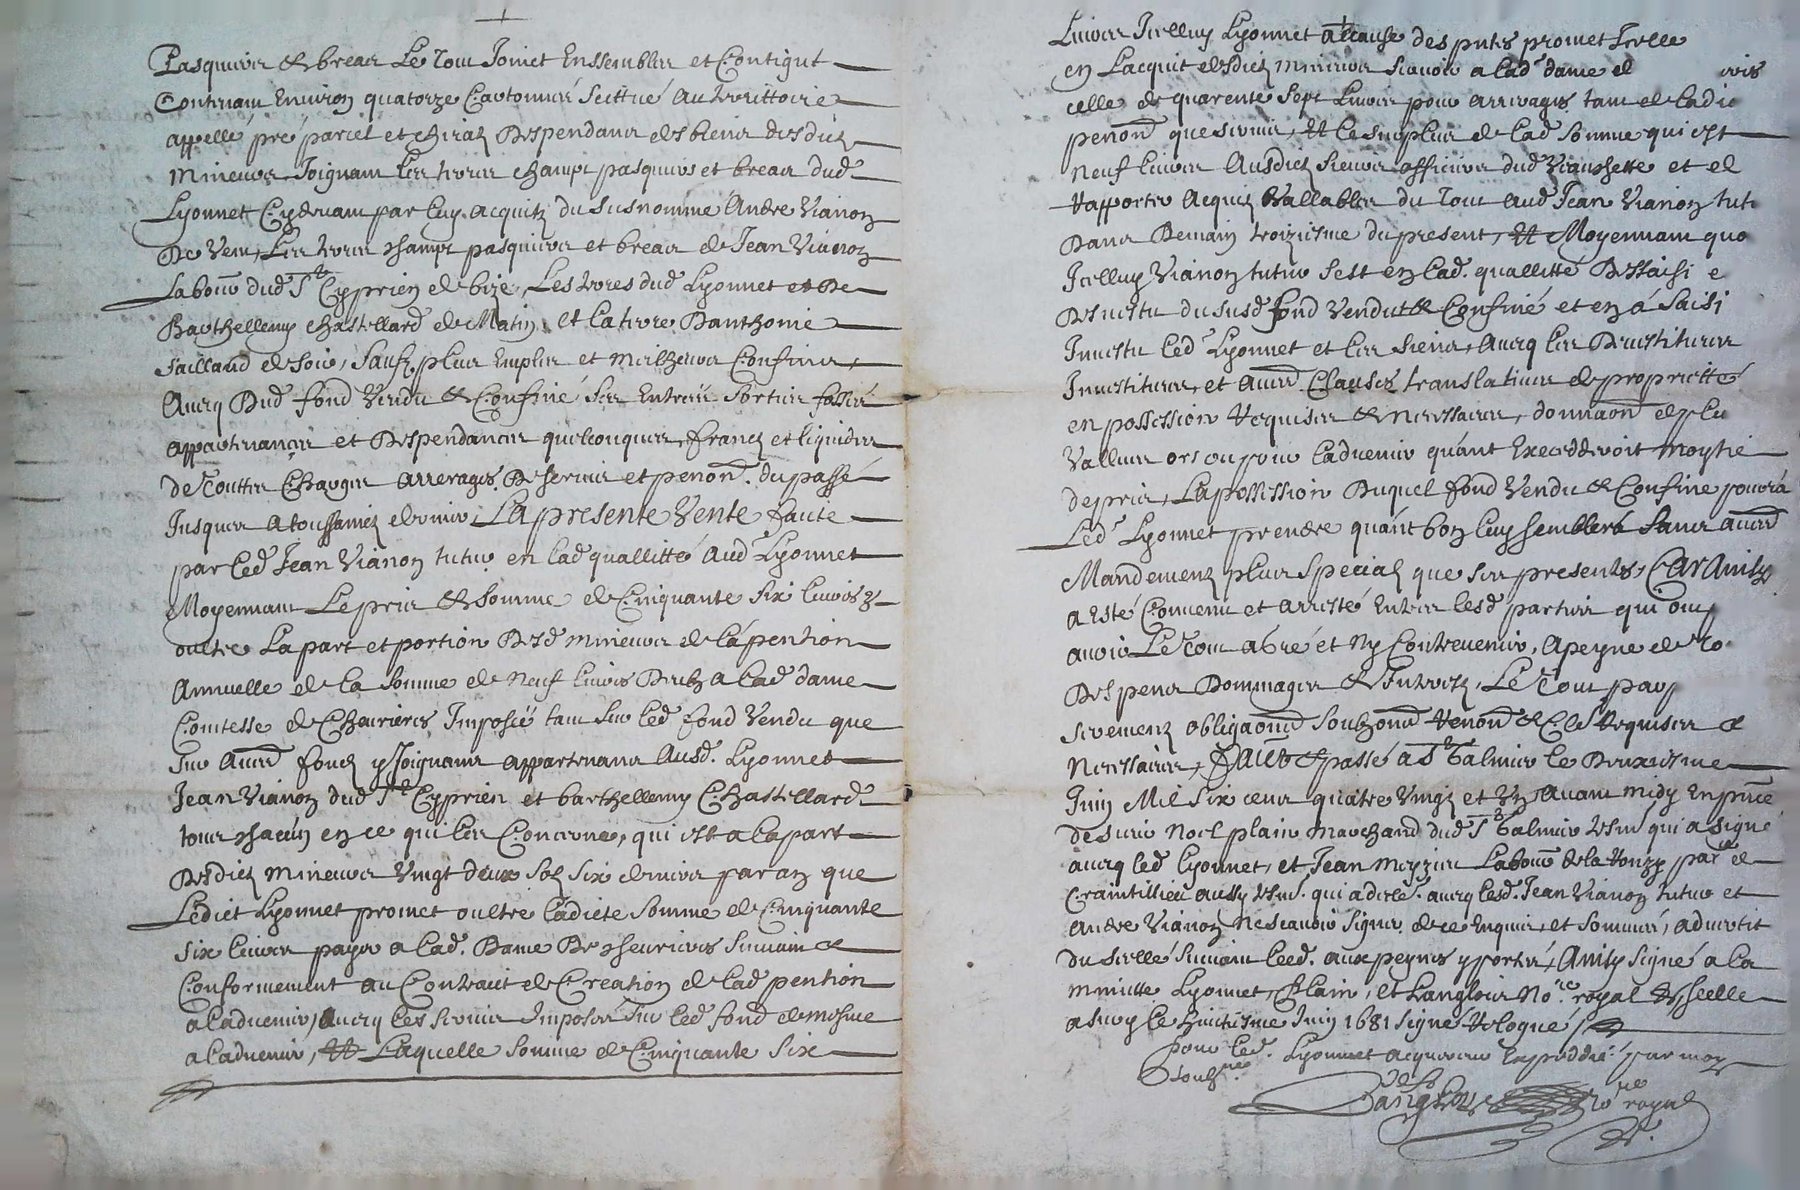 Pasquiers & breas Le Tout Joinct Enssembles et Contigut
Contenant Environ quatorze Cartonnés Scittué Au territtoire
appellé pré parcel et chiraz Despendant des biens desdictz
Mineurs Joignant les terres champt pasquiers et breas dud.
Lyonnet Cydevant par luy acquitz du susnommé Andre Vianon
De Vent, Les terres champt pasquiers et breas de Jean Vianon
Labour dud. St Cyprien de bize, Les terres dud. Lyonnet et De
Barthellemy chastellard de Matin, et la terre D'anthonie
failland de soir, Saufz plus Emples et meilheurs Confins,
Avecq Dud. fond Vendu & Confiné Ses Entrées Sorties fossés
appartenances et Despendances quelconques, francz et liquides
de Touttes Charges arrerages De servis et penon. du passé
Jusques a toussainctz dernier, La presente Vente faitte
par led. Jean Vianon tuteur en lad. quallitté Aud. Lyonnet
Moyennant Le pris & Somme de Cinquante Six Livres &
oultre La part et portion Desd. mineurs de la pention
Annuelle de la Somme de Neuf livres Deubz a lad. dame
Comtesse de Chevrieres Imposéé tant Sur led. fond Vendu que
Sur Autres fondz y Joignant appartenant Ausd. Lyonnet
Jean Vianon dud. St Cyprien et barthellemy Chastellard
tous chacun en ce qui les Concerne, qui est a la part
Desdictz Mineurs Vingt deux Solz Six deniers par an que
Ledict Lyonnet promet oultre ladicte Somme de Cinquante
Six livres payer a lad. Dame De Chevrieres Suivant &
Conformement au Contract de Creation de lad. pention
a ladvenir, Avecq les Servis Imposés Sur led. fond de mesme
a ladvenir, Et Laquelle Somme de Cinquante Six
Livres Icelluy Lyonnet a Cause des pntes promet Icelle
en Lacquit desdictz mineurs Scavoir a lad. dame
celle de quarente Sept Livres pour arrerages tant de ladic
penon que servis, Et le surplus de lad. Somme qui est
Neuf livres Ausdictz Sieurs officiers dud. et
Rapporter Acquictz Vallables du Tout aud. Jean Vianon tut
Dans Demain troiziesme du present, Et Moyennant quo
Icelluy Vianon tuteur Sest en lad. quallitté Dessaisi e
Desvestu du Susd. fond Vendu & Confiné et en a Saisi
Investu led. Lyonnet et les Siens, Avecq les Devestitures
Investitures, et Autres Clauses translatives de proprietté
en possession Requises & Necessaires, donnaon de plu
Vallues ores ou pour ladvenir quant Excedderoit moytié
de pris, La possession Duquel fond Vendu & Confiné pourra
Led. Lyonnet prendre quant bon luy semblera Sans autre
Mandement plus Special que Ses presentes, Car Ainsy
a Esté Convenu et arresté Entre lesd. parties qui ont
avoir Le Tout abré et Ny Contrevenir, Apeyne de To
Despens Dommages & Interestz, Le Tout par
serement obligaon Soubzon Renon & Cles Requises &
Necessaires, Faict & passé a St Galmier le Deuxiesme
Juin Mil Six cens quatre Vingt et Un Avant midy En pnce
de sieur Noel plain Marchand dud. St Galmier tesm. qui a signé
avecq led. Lyonnet, et Jean meyzieu Labour de la Ronzy parr. de
Craintillieu aussy tesm. qui a avecq lesd. Jean Vianon tuteur et
Andre Vianon Ne Scavoir Signer de ce Enquis et Sommés, advertit
du Scellé Suivant Leed. aux peynes y portés, Ainsy Signé a la
minutte Lyonnet, Plain, et Langlois No.re royal & Scellé
a Sury le huictiesme Juin 1681 Signé Relogué
pour led. Lyonnet acquereur Expeddié par moy
Soubz.né
Langlois No.re royal